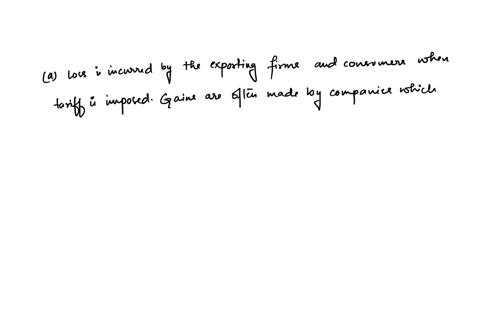 (a) Loss is incurred by the exporting firms and consumers when
tariff is imposed. Gains are often made by companies which